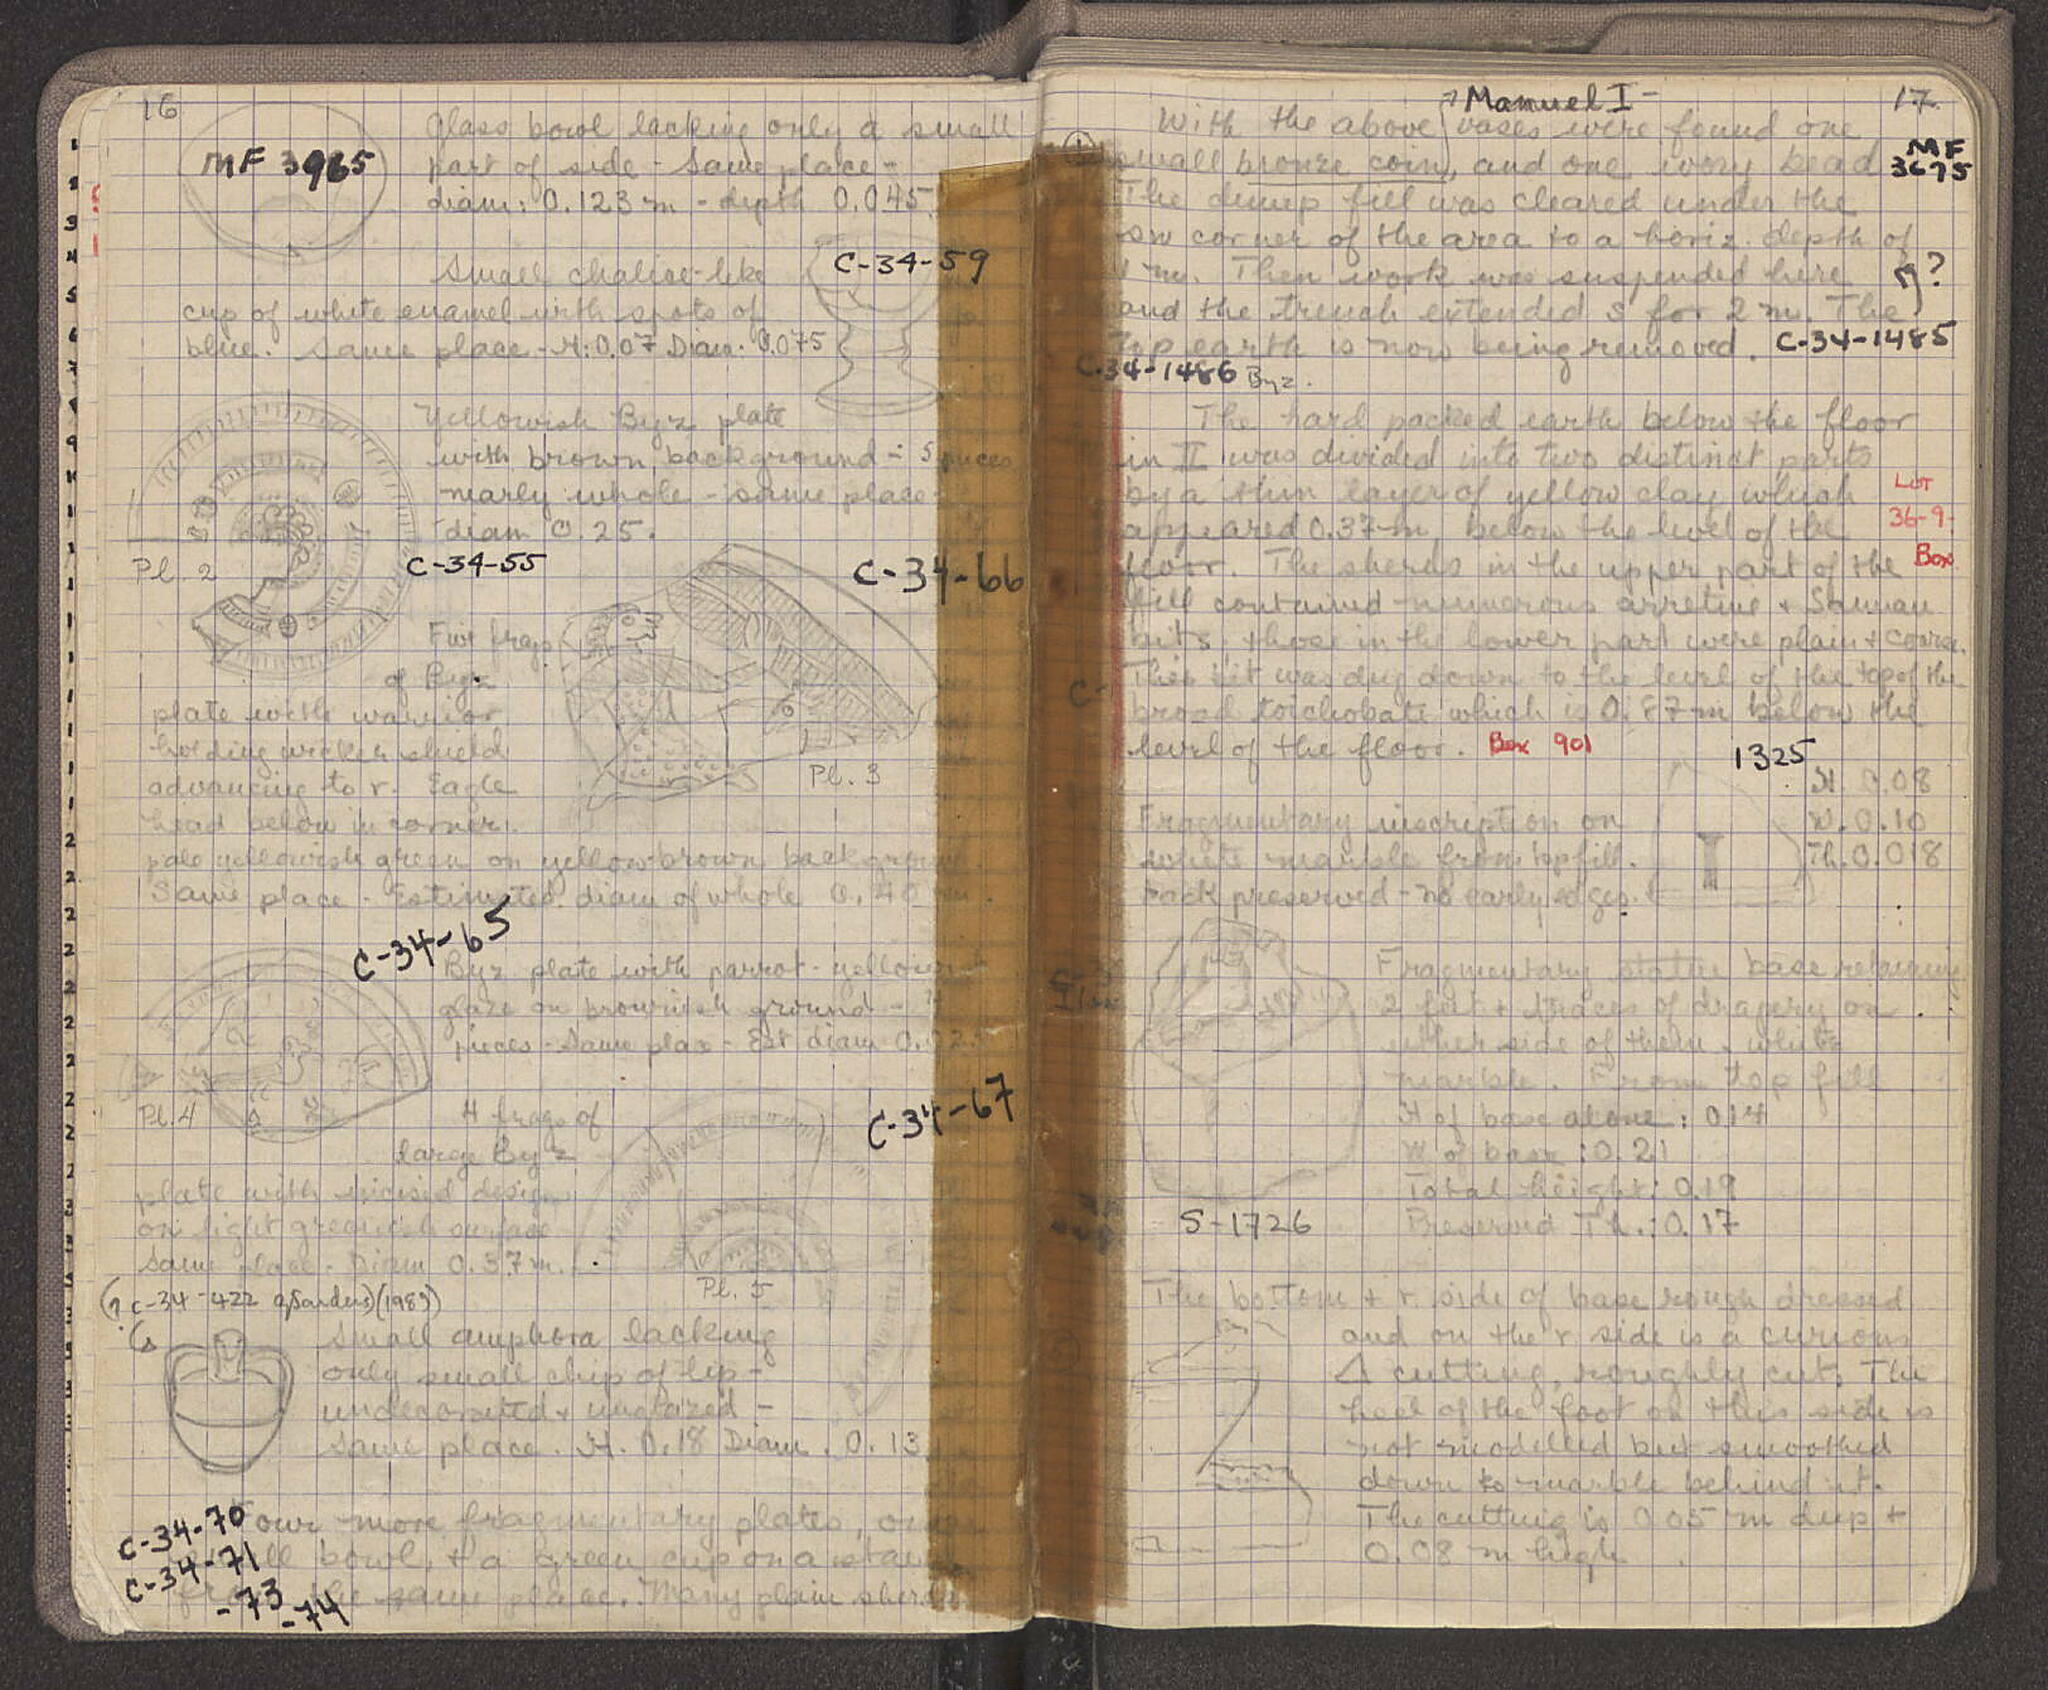 16
Glass bowl lacking only a small
MF 3965
part of side - same place -
diam: 0.123 m - depth 0.045
Small chalice-like
C-34-59
cup of white enamel with spots of
blue. Same place - H: 0.07 Diam. 0.075
Yellowish Byz plate
with brown background - 5 pieces
nearly whole - same place -
diam 0.25.
Pl. 2
C-34-55
C-34-66
Five frags
of Byz
plate with warrior
holding wicker shield
advancing to r. Eagle
Pl. 3
head below in corner.
pale yellowish green on yellow brown background.
Same place - Estimated diam of whole 0.40 m.
C-34-65
Byz plate with parrot - yellow
glaze on brownish ground -
pieces - Same place - Est diam
Pl. 4
C-34-67
4 frags of
large Byz
plate with incised design
on light greenish surface
same place - Diam 0.37 m.
Pl. 5
(? C-34-422 (1989)
Small amphora lacking
only small chip of lip -
undecorated & unglazed -
same place. H. 0.18 Diam. 0.13
C-34-70
Four more fragmentary plates, one
C-34-71
bowl, & a green cup on a
-73
-74
the same place. Many plain sherds
17
Manuel I -
With the above vases were found one
small bronze coin, and one ivory bead
MF
3675
The dump fill was cleared under the
SW corner of the area to a horiz. depth of
1 m. Then work was suspended here
?
and the trench extended S for 2 m. The
top earth is now being removed. C-34-1485
C-34-1486 Byz.
The hard packed earth below the floor
in II was divided into two distinct parts
by a thin layer of yellow clay which
LOT
36-9-
Box
appeared 0.37 m below the level of the
floor. The sherds in the upper part of the
fill contained numerous arretine & Samian
bits, those in the lower part were plain & coarse.
This pit was dug down to the level of the top of the
broad toichobate which is 0.87 m below the
level of the floor. Box 901
1325
H. 0.08
W. 0.10
Th. 0.018
Fragmentary inscription on
white marble from top fill.
Back preserved - no early edges.
Fragmentary statue base retaining
2 feet & traces of drapery on
either side of them. white
marble. From top fill
H of base alone: 0.14
W of base: 0.21
Total height: 0.19
S-1726
Preserved Th.: 0.17
The bottom & r. side of base rough dressed
and on the r side is a curious
Δ cutting, roughly cut. The
heel of the foot on this side is
not modelled but smoothed
down to marble behind it.
The cutting is 0.05 m deep &
0.08 m high.